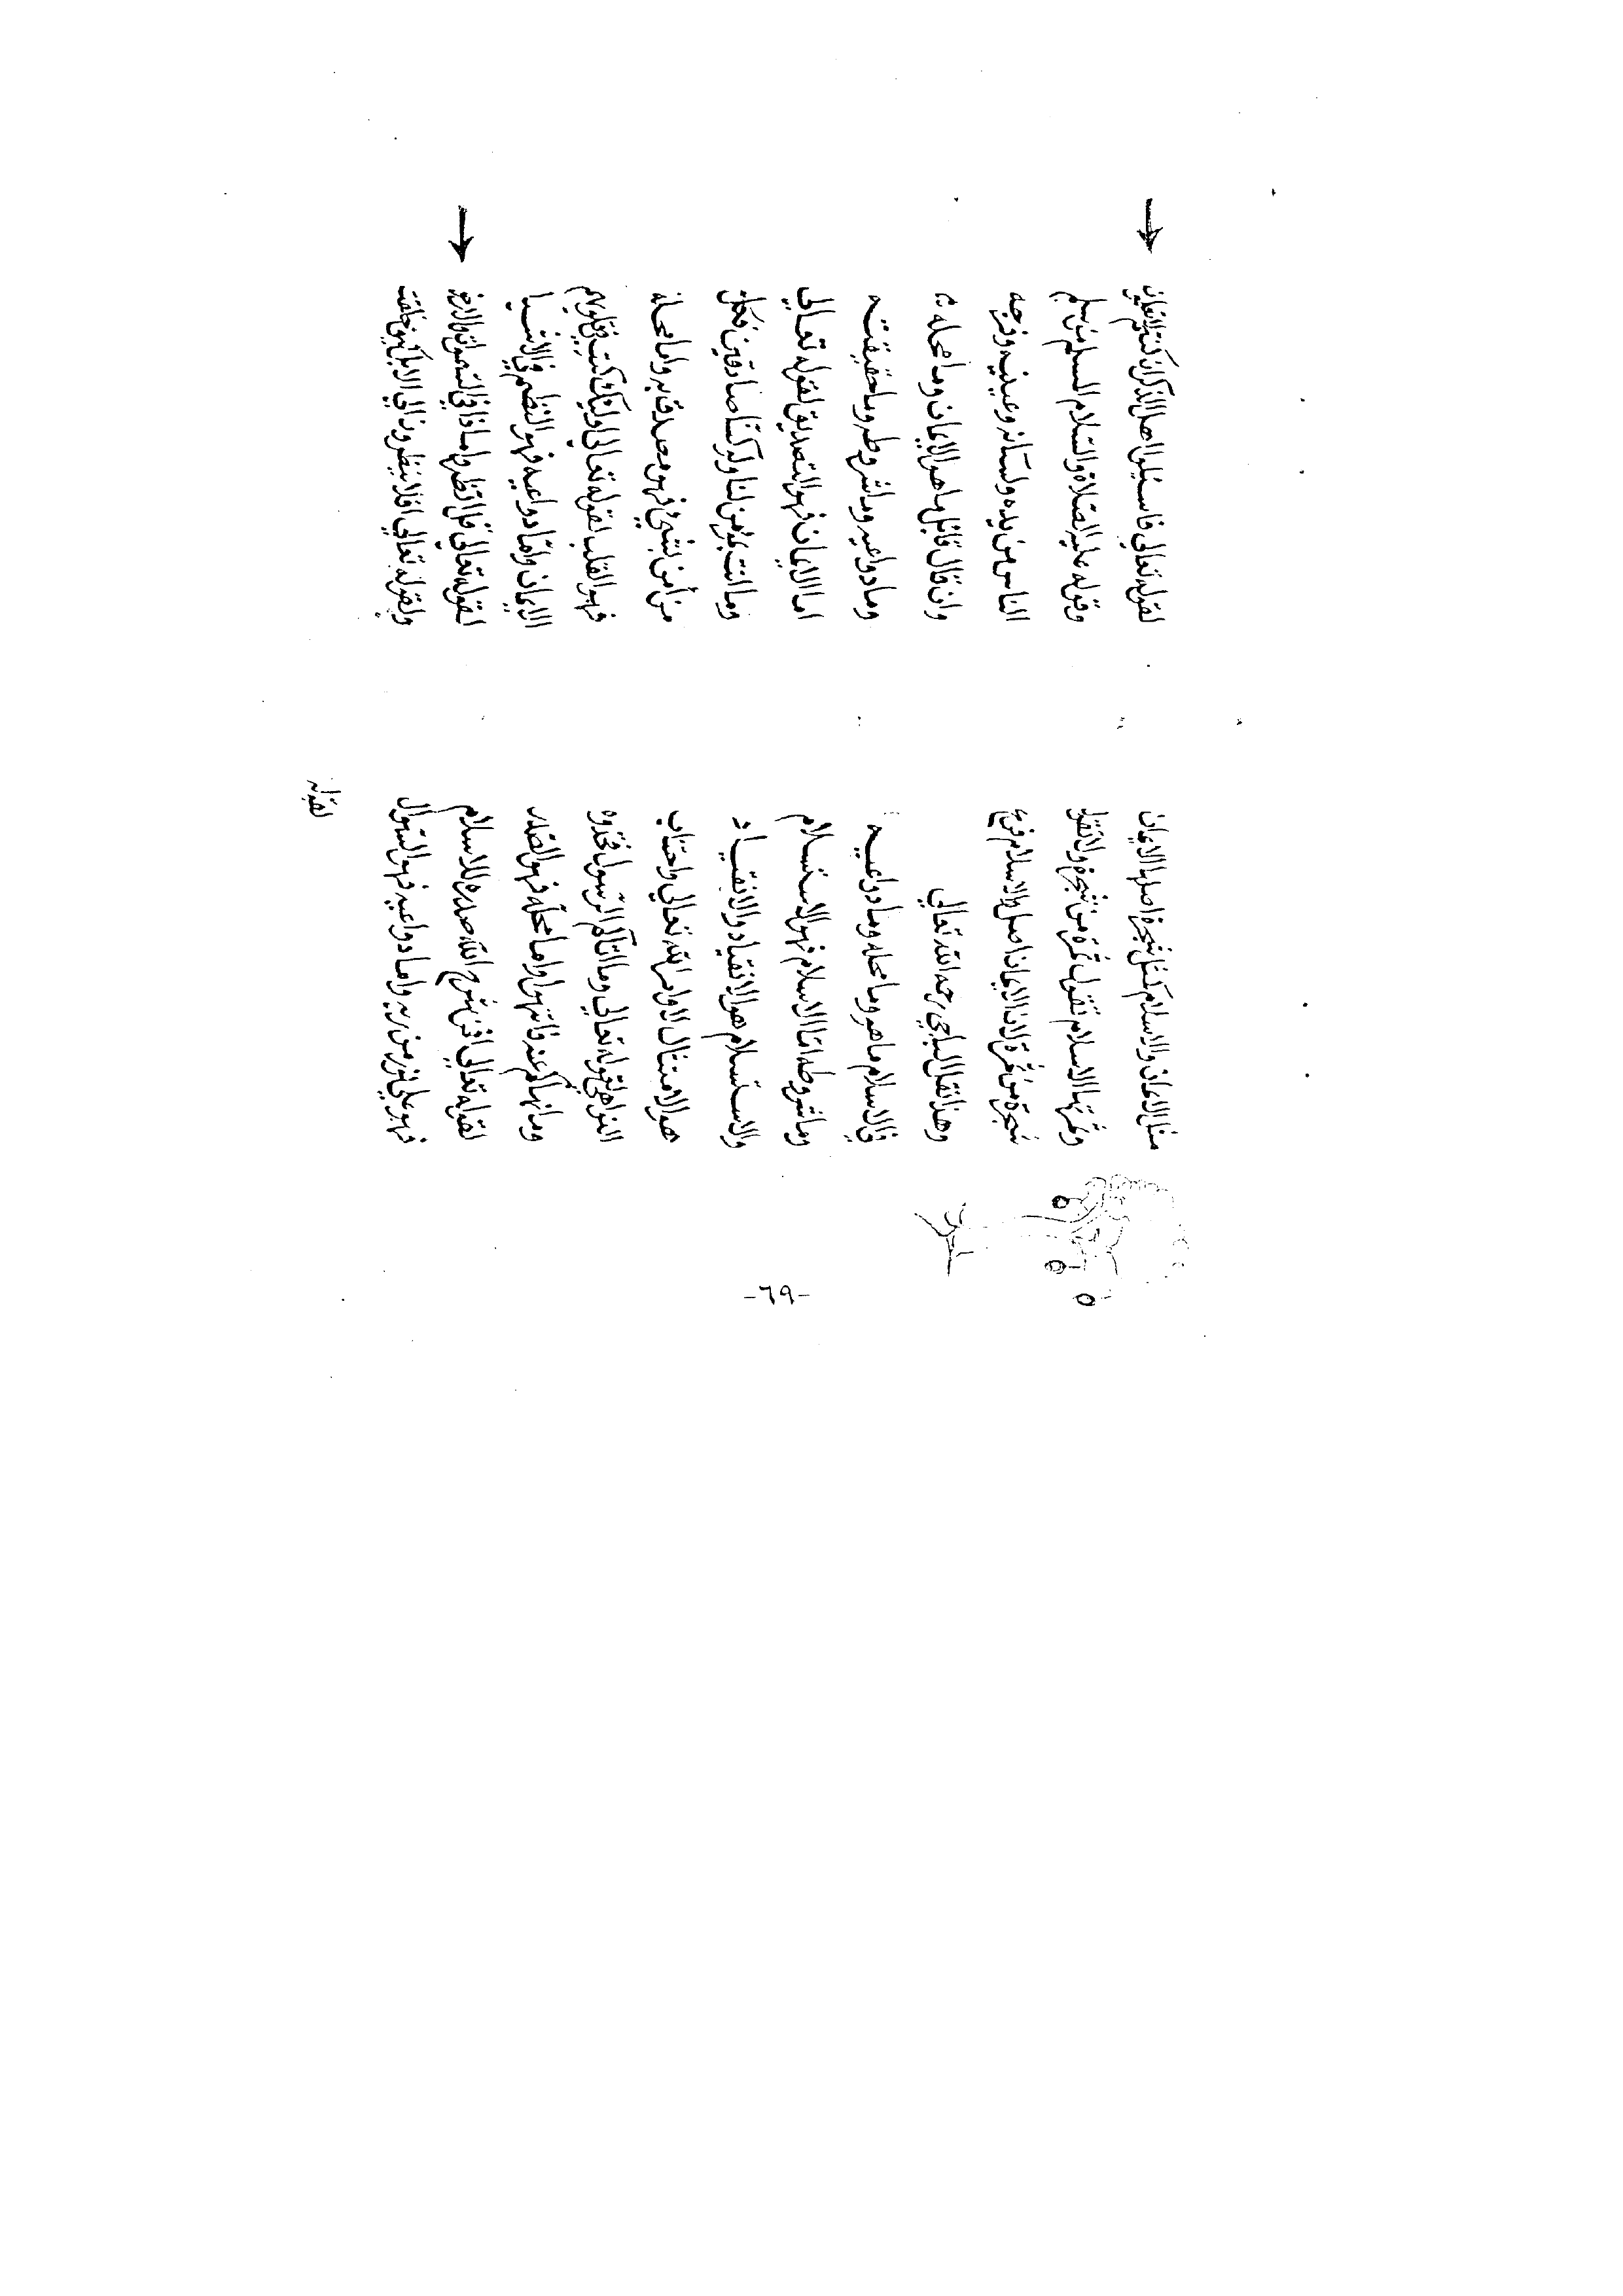 مثل الايمان والاسلام كمثل شجرة اصلها الايمان
وثمرتها الاسلام تقول ثمرة من شجرة ولا تقل
شجرة من ثمرة لان الايمان اصل والاسلام فرع
وهذا نقل الباجي رحمه الله تعالى
في الاسلام ما هو وما محله وما دواعيه
وما شروطه اما الاسلام فهو الاستسلام
والاستسلام هو الانقياد والانقياد
هو الامتثال لاوامر الله تعالى واجتناب
النواهي لقوله تعالى وما اتاكم الرسول فخذوه
وما نهاكم عنه فانتهوا واما محله فهو الصدر
لقوله تعالى افمن شرح الله صدره للاسلام
فهو على نور من ربه واما دواعيه فهو السؤال
لقوله
لقوله تعالى فاسئلوا اهل الذكر ان كنتم لا تعلمون
وقوله عليه الصلاة والسلام المسلم من سلم
الناس من يده ولسانه وعينيه وفرجه
وان قال قائل ما هو الايمان وما محله
وما دواعيه وما شروطه وما حقيقته
اما الايمان فهو التصديق لقوله تعالى
وما انت بمؤمن لنا ولو كنا صادقين فكل
من أمن بشيئ فهو مصدق به واما محله
فهو القلب لقوله تعالى اوليك كتب في قلوبهم
الايمان واما دواعيه فهو النظر في الاشيا
لقوله تعالى قل انظروا ماذا في السموات والارض
ولقوله تعالى افلا ينظرون الى الابل كيف خلقت
-٦٩-